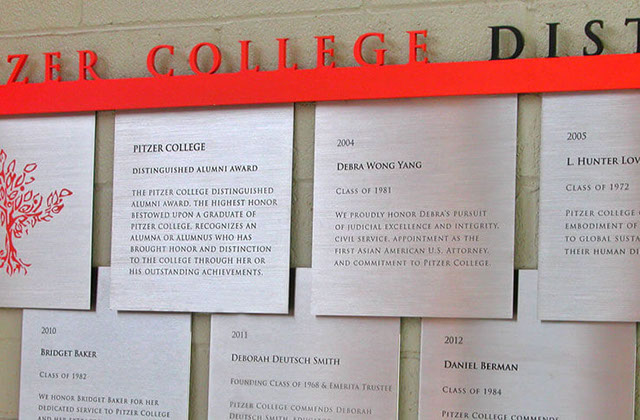 PITZER COLLEGE
DISTINGUISHED ALUMNI AWARD
THE PITZER COLLEGE DISTINGUISHED
ALUMNI AWARD, THE HIGHEST HONOR
BESTOWED UPON A GRADUATE OF
PITZER COLLEGE, RECOGNIZES AN
ALUMNA OR ALUMNUS WHO HAS
BROUGHT HONOR AND DISTINCTION
TO THE COLLEGE THROUGH HER OR
HIS OUTSTANDING ACHIEVEMENTS.
2004
DEBRA WONG YANG
CLASS OF 1981
WE PROUDLY HONOR DEBRA'S PURSUIT
OF JUDICIAL EXCELLENCE AND INTEGRITY,
CIVIL SERVICE, APPOINTMENT AS THE
FIRST ASIAN AMERICAN U.S. ATTORNEY,
AND COMMITMENT TO PITZER COLLEGE.
2005
L. HUNTER LOV
CLASS OF 1972
PITZER COLLEGE
EMBODIMENT OF
TO GLOBAL SUSTA
THEIR HUMAN DI
2010
BRIDGET BAKER
CLASS OF 1982
WE HONOR BRIDGET BAKER FOR HER
DEDICATED SERVICE TO PITZER COLLEGE
2011
DEBORAH DEUTSCH SMITH
FOUNDING CLASS OF 1968 & EMERITA TRUSTEE
PITZER COLLEGE COMMENDS DEBORAH
DEUTSCH SMITH,
2012
DANIEL BERMAN
CLASS OF 1984
PITZER COLLEGE COMMENDS
ZER COLLEGE DIST